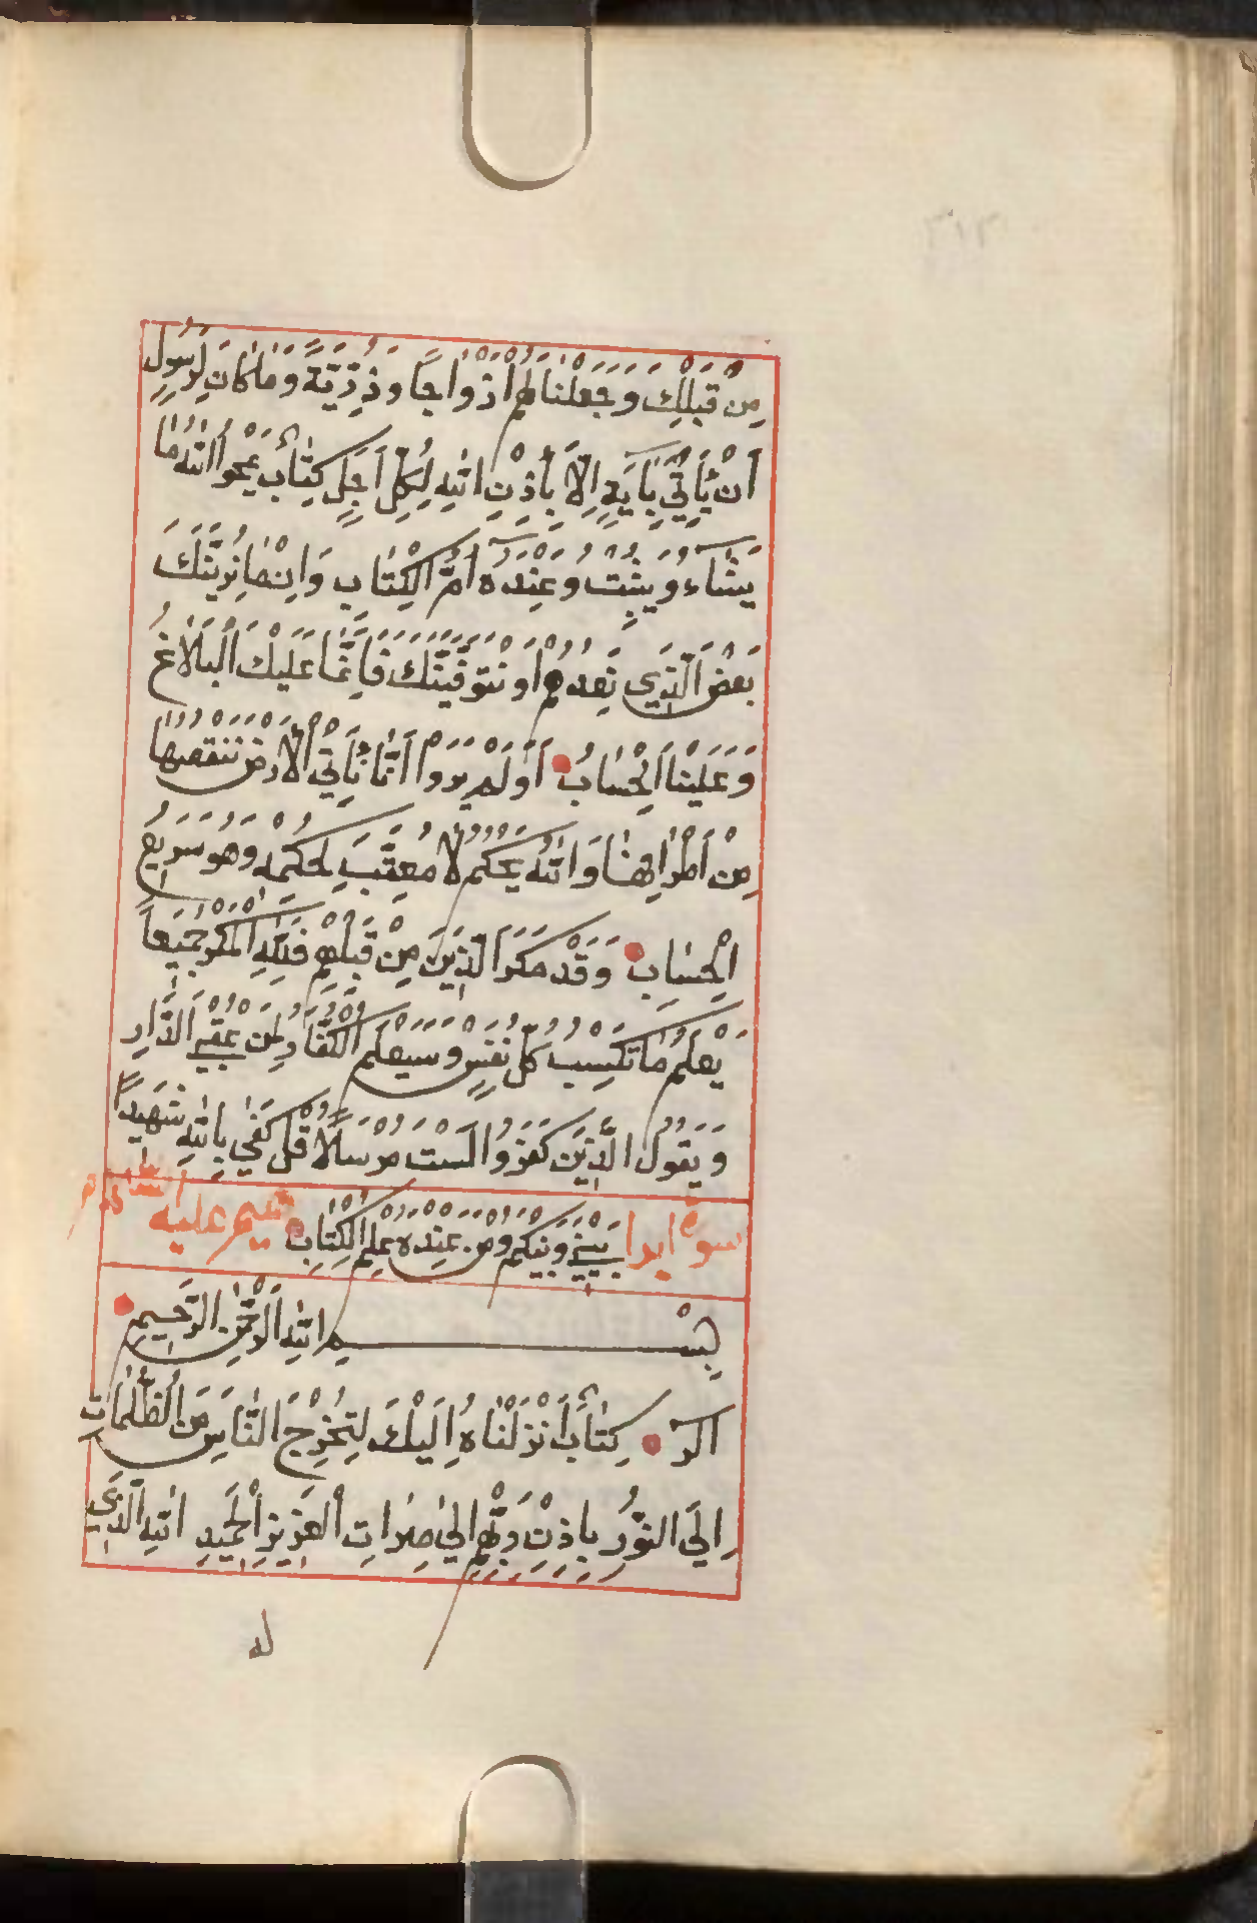 ٣١٣
مِنْ قَبْلِكَ وَجَعَلْنَا لَهُمْ اَزْوَاجًا وَذُرِّيَّةً وَمَا كَانَ لِرَسُولٍ
اَنْ يَأْتِيَ بِاٰيَةٍ اِلَّا بِاِذْنِ اللّٰهِ لِكُلِّ اَجَلٍ كِتَابٌ يَمْحُوا اللّٰهُ مَا
يَشَاءُ وَيُثْبِتُ وَعِنْدَهُ اُمُّ الْكِتَابِ وَاِنْ مَا نُرِيَنَّكَ
بَعْضَ الَّذِي نَعِدُهُمْ اَوْ نَتَوَفَّيَنَّكَ فَاِنَّمَا عَلَيْكَ الْبَلَاغُ
وَعَلَيْنَا الْحِسَابُ اَوَلَمْ يَرَوْا اَنَّا نَأْتِي الْاَرْضَ نَنْقُصُهَا
مِنْ اَطْرَافِهَا وَاللّٰهُ يَحْكُمُ لَا مُعَقِّبَ لِحُكْمِهِ وَهُوَ سَرِيعُ
الْحِسَابِ وَقَدْ مَكَرَ الَّذِينَ مِنْ قَبْلِهِمْ فَلِلّٰهِ الْمَكْرُ جَمِيعًا
يَعْلَمُ مَا تَكْسِبُ كُلُّ نَفْسٍ وَسَيَعْلَمُ الْكُفَّارُ لِمَنْ عُقْبَى الدَّارِ
وَيَقُولُ الَّذِينَ كَفَرُوا لَسْتَ مُرْسَلًا قُلْ كَفٰى بِاللّٰهِ شَهِيدًا
سورة ابرا بَيْنِي وَبَيْنَكُمْ وَمَنْ عِنْدَهُ عِلْمُ الْكِتَابِ هيم عليه السلام
بِسْمِ اللّٰهِ الرَّحْمٰنِ الرَّحِيمِ
الٓرٰ كِتَابٌ اَنْزَلْنَاهُ اِلَيْكَ لِتُخْرِجَ النَّاسَ مِنَ الظُّلُمَاتِ
اِلَى النُّورِ بِاِذْنِ رَبِّهِمْ اِلٰى صِرَاتِ الْعَزِيزِ الْحَمِيدِ اللّٰهِ الَّذِي
له